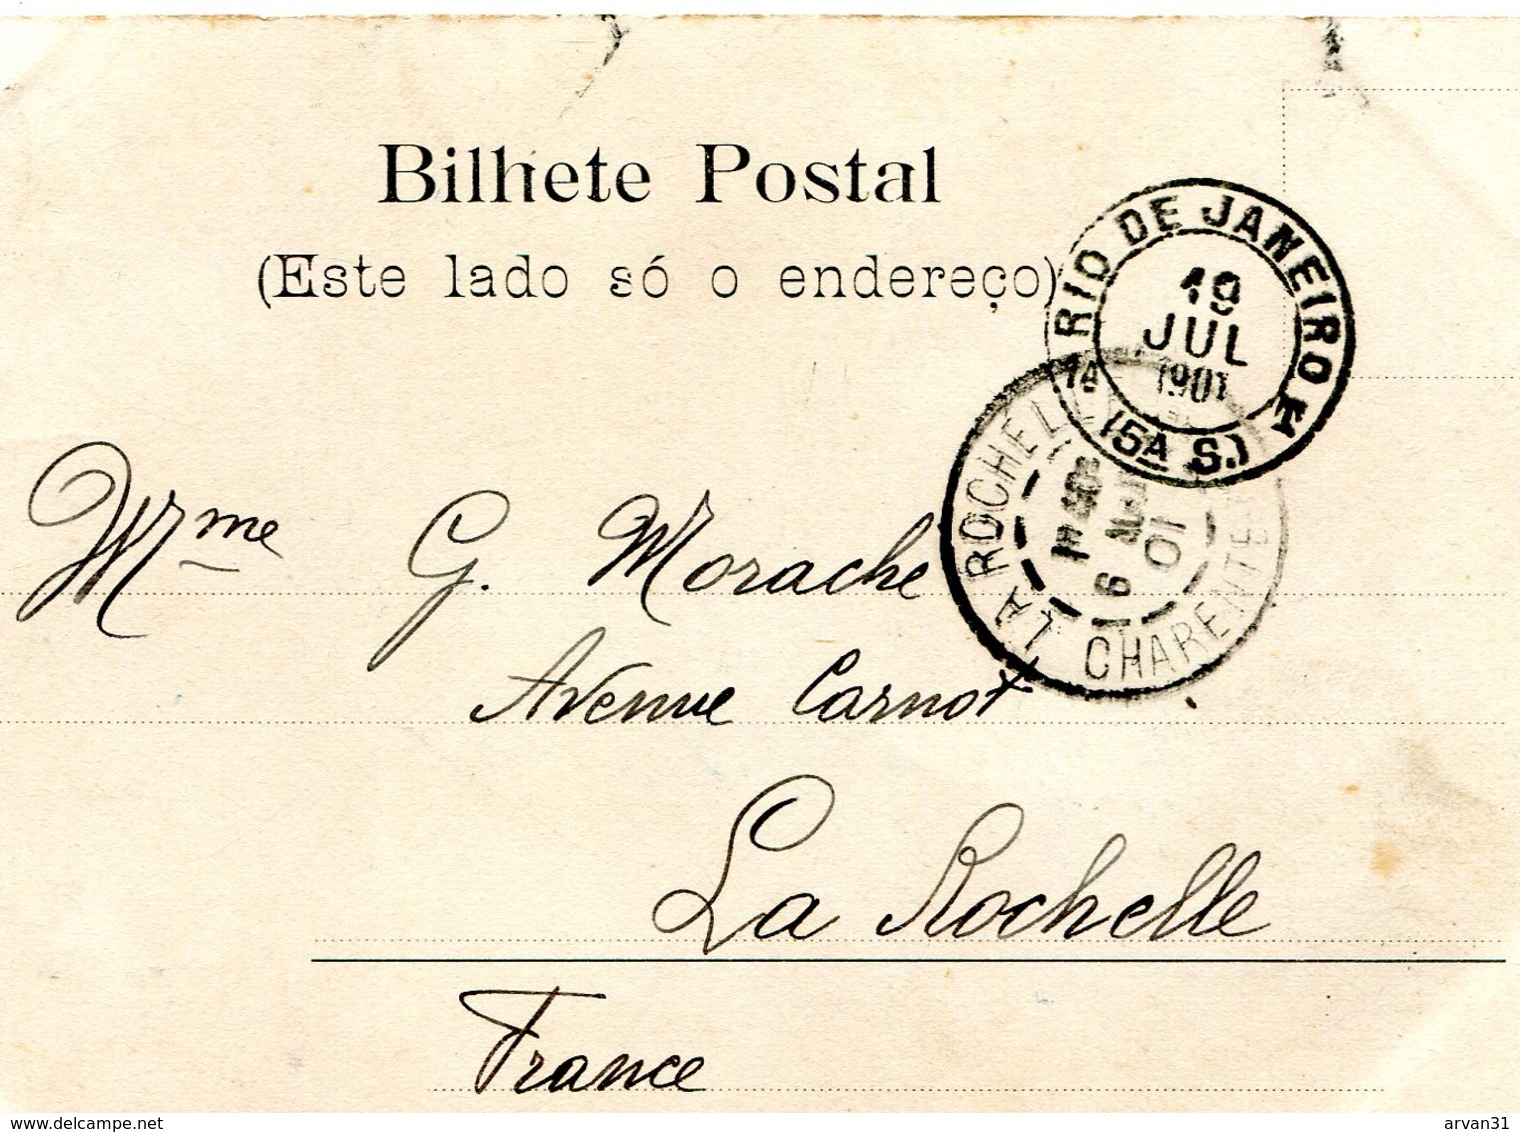 Bilhete Postal
(Este lado só o endereço)
RIO DE JANEIRO
19
JUL
1901
(5A S.)
LA ROCHELLE
6
01
CHARENTE
Mme G. Morache
Avenue Carnot
La Rochelle
France
www.delcampe.net
arvan31